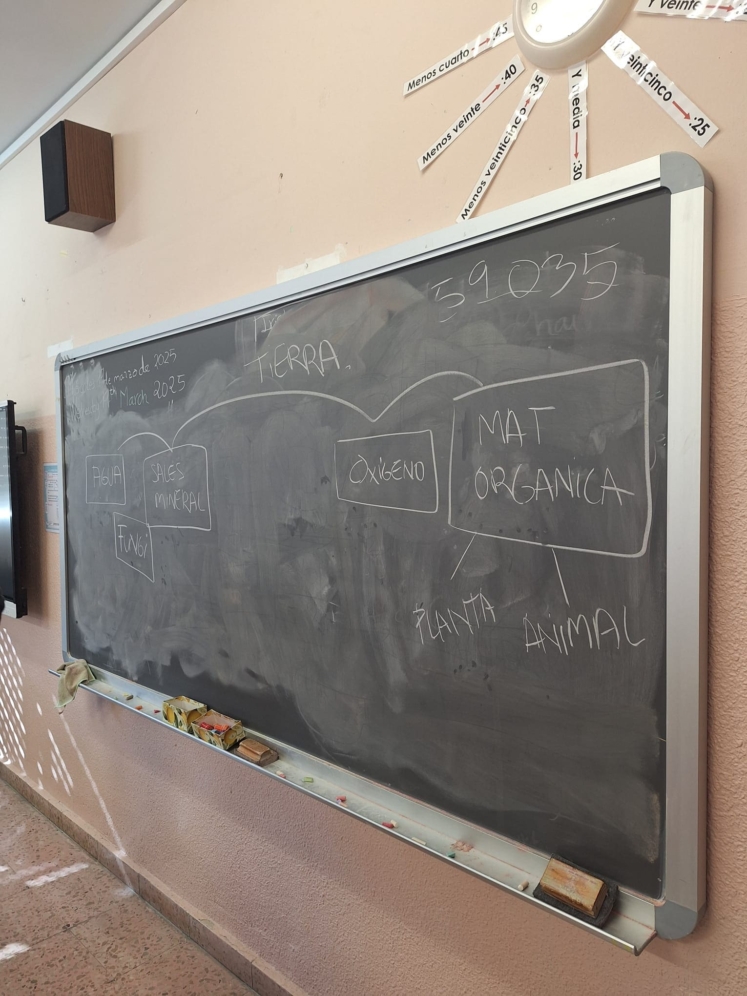 9
Y veinte
Menos cuarto → :45
Menos veinte → :40
Menos veinticinco → :35
Y media → :30
Y veinticinco → :25
59035
de marzo de 2025
March 2025
TIERRA.
AGUA
SALES
MINERAL
FUNGI
OXÍGENO
MAT
ORGANICA
PLANTA
ANIMAL